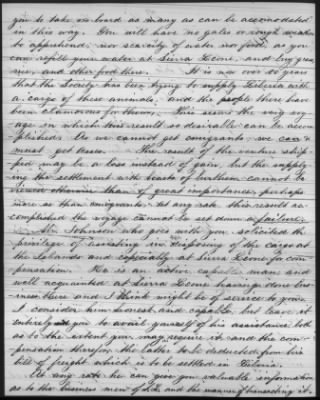 you to take on board as many as can be accomodated
in this way. You will have no gales or rough weather
to apprehend, nor scarcity of water nor food, as you
can refill your water at Sierra Leone, and buy grass,
rice, and other food there. It is now over 50 years
that the Society has been trying to supply Liberia with
a cargo of these animals, and the people there have
been clamorous for them. This seems the very voy-
age in which this result so desirable can be accom-
plished. As we cannot get emigrants, we can &
must get asses. The result of the venture ship-
ped may be a loss instead of gain, but the supply-
ing the settlement with beasts of burthen cannot be
viewed otherwise than of great importance, perhaps
more so than emigrants. At any rate this result ac-
complished the voyage cannot be set down a failure.
Mr. Johnson who goes with you, solicited the
privilege of assisting in disposing of the cargo at
the Islands and especially at Sierra Leone for com-
pensation. He is an active, capable man, and
well acquainted at Sierra Leone having done bus-
iness there and I think might be of service to you.
I consider him honest and capable, but leave it
entirely with you to avail yourself of his assistance both
as to the extent you may require it and the com-
pensation therefor, the latter to be deducted from his
bill of freight which is to be settled in Liberia.
At any rate he can give you valuable information
as to the business men of and the manner of transacting it.